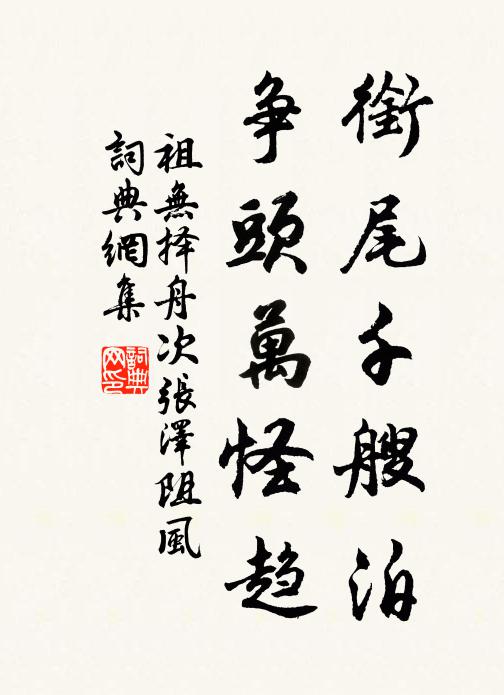 銜尾千艘泊
争頭萬怪趨
祖無择舟次張澤阻風
詞典網集
詞典网印